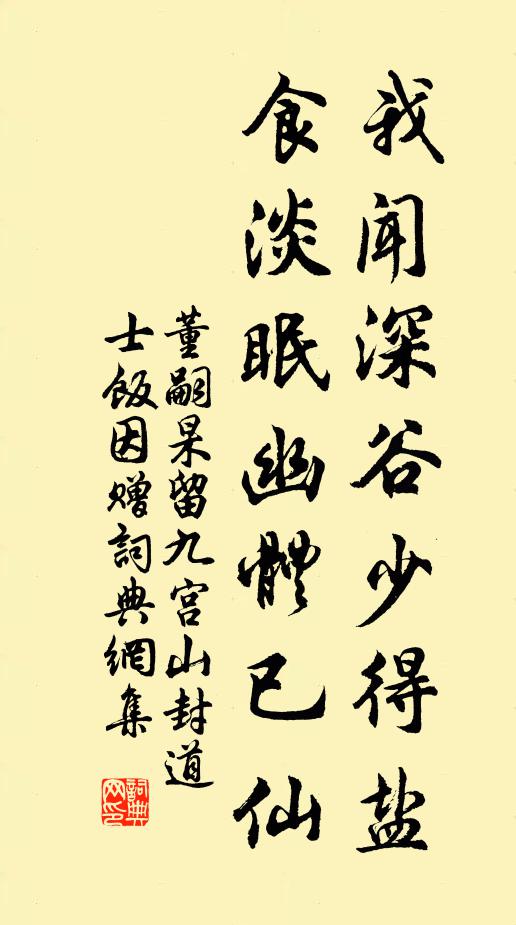 我闻深谷少得盐
食淡眠幽體已仙
董嗣杲留九宫山封道
士飯因赠詞典網集
詞典
网印